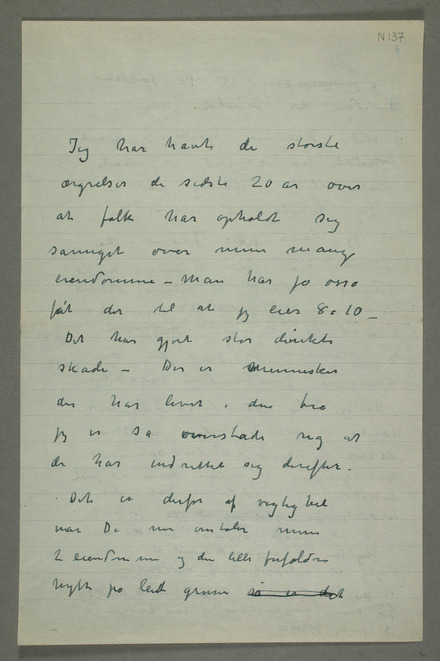 N 137
Jeg har havt de storste
ærgrelser de sidste 20 aar over
at folk har opholdt sig
saa meget over mine mange
eiendomme – man har jo osso
fåt det til at jeg eier 8 a 10 –
Det har gjort stor direkte
skade – Der er mennesker
der har levet i den tro
jeg er så rig at
de har indrettet sig derefter.
Det er derfor af vigtighet
naar De nu omtaler mine
2 eiendomme og den lille
hytte på grænsen så er det